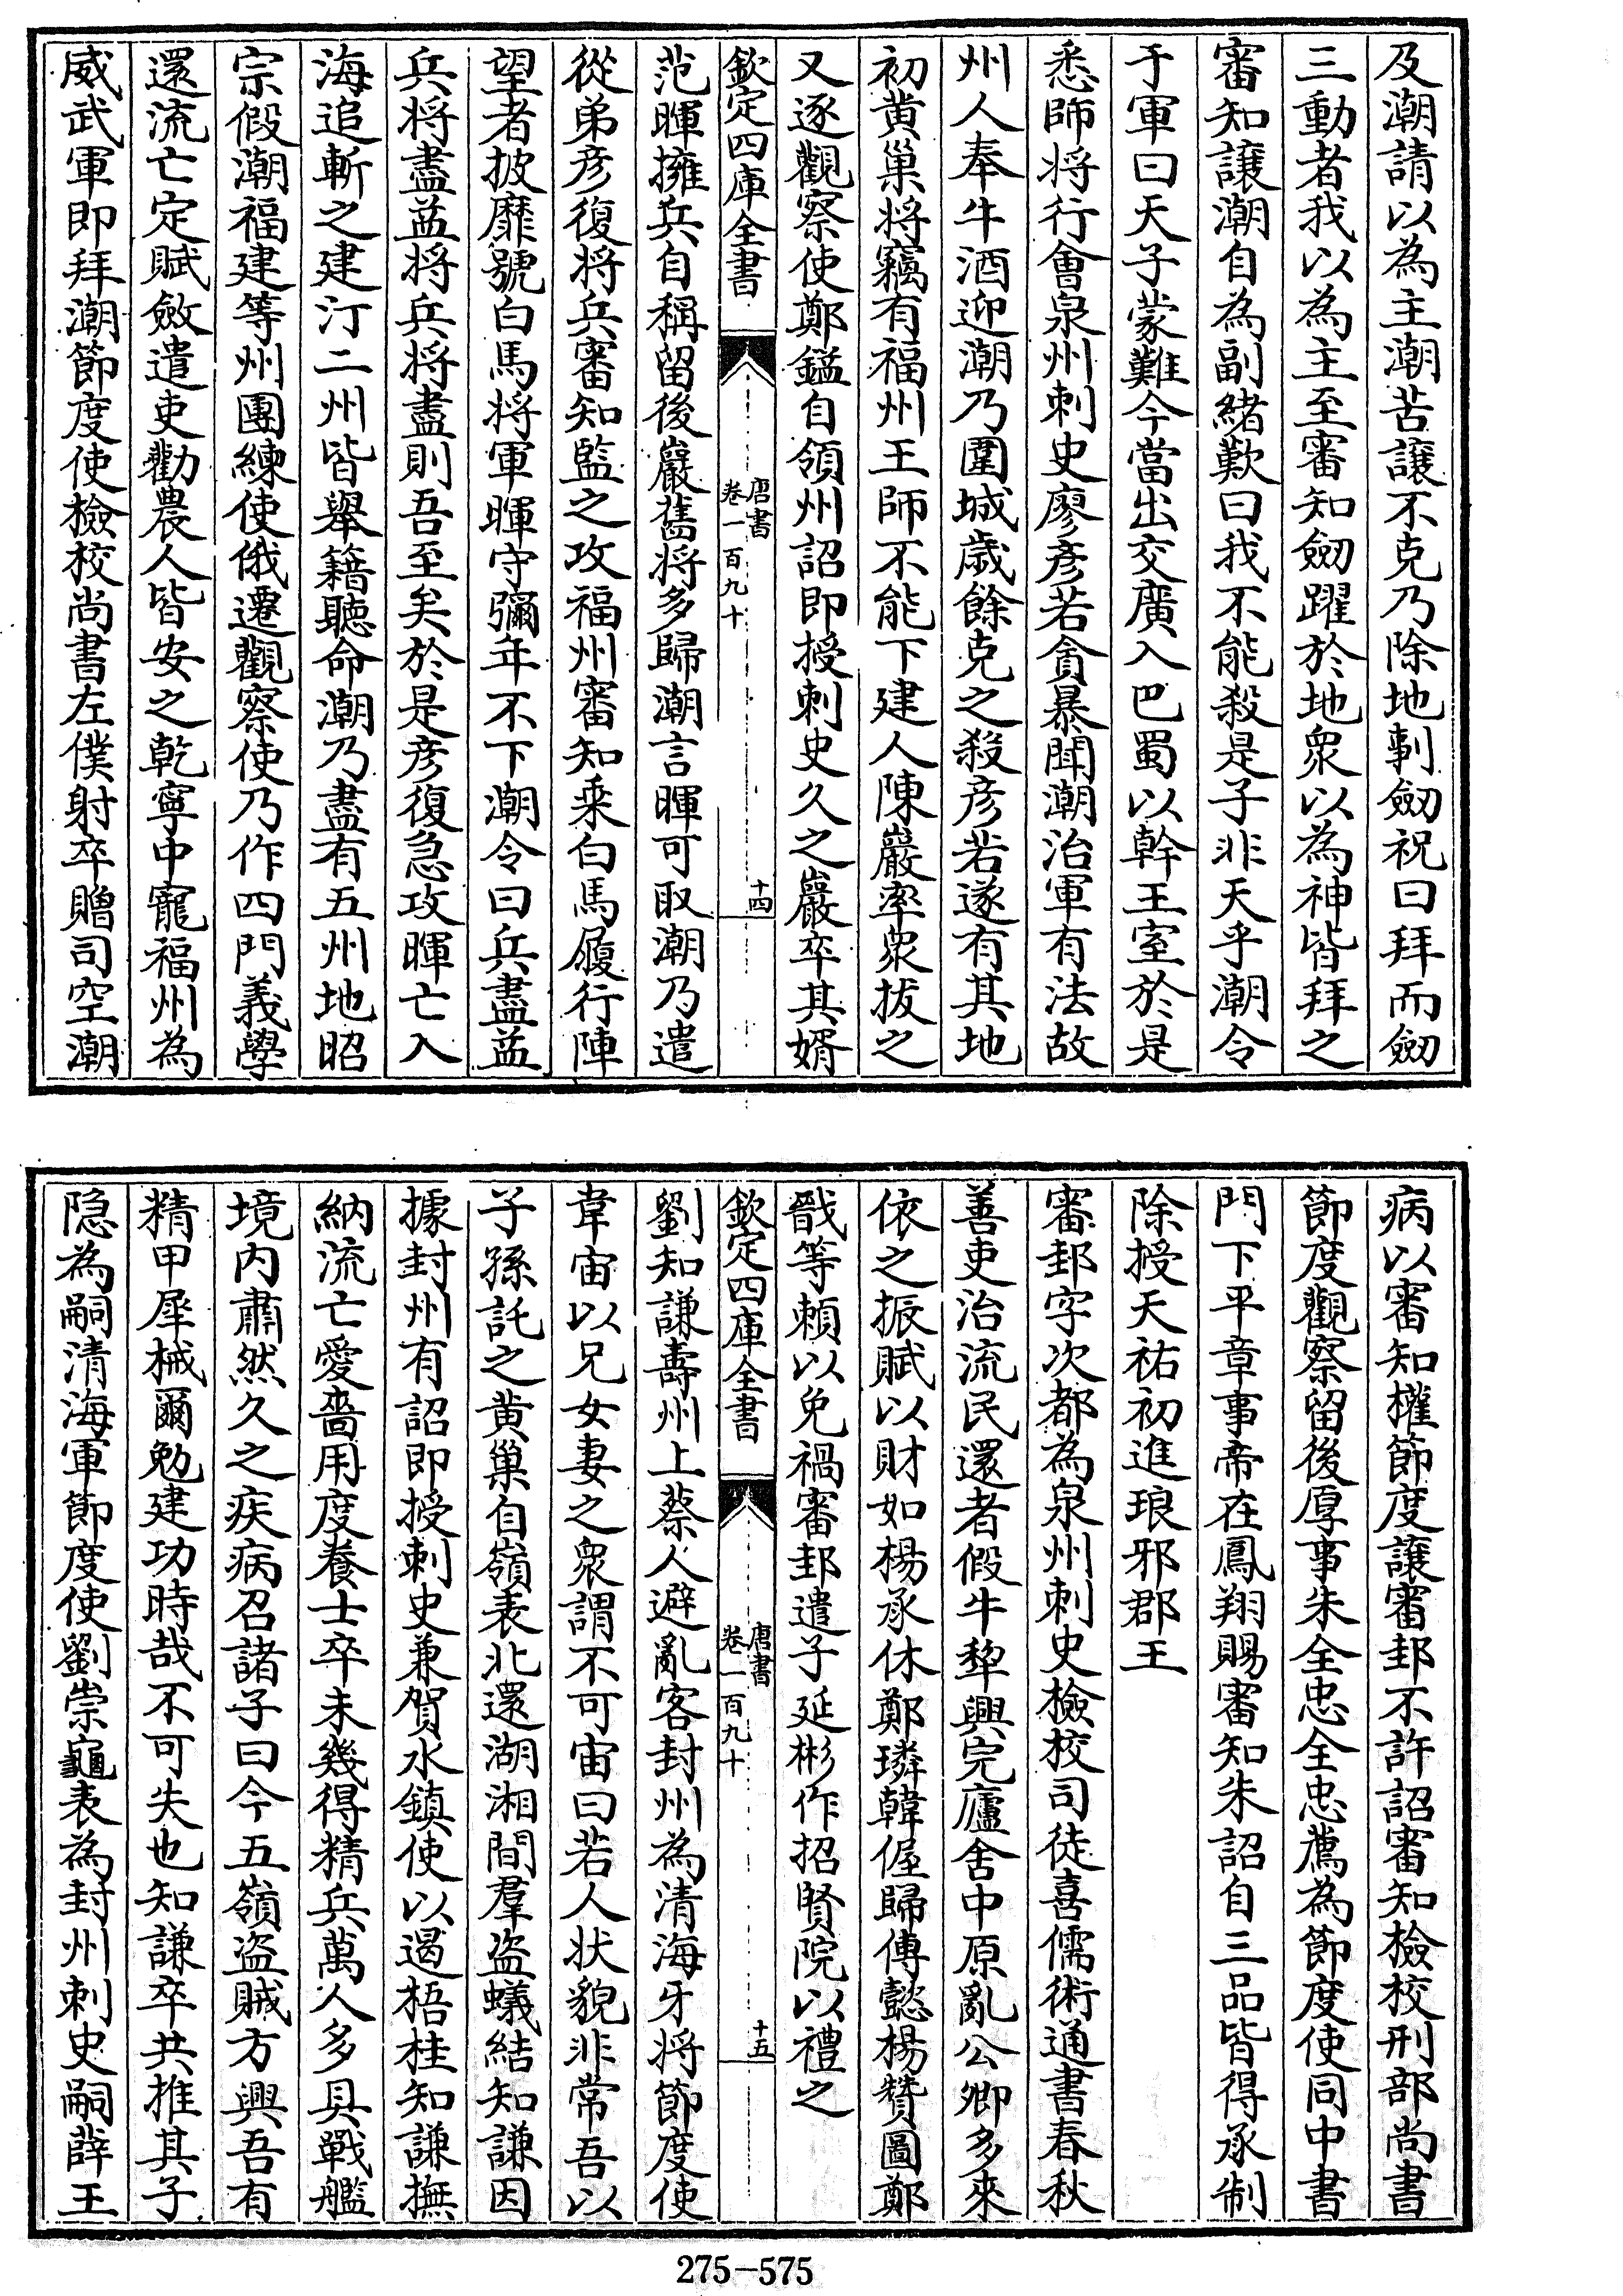 及潮請以為主潮苦讓不克乃除地剚劒祝曰拜而劒
三動者我以為主至審知劒躍於地衆以為神皆拜之
審知讓潮自為副緒歎曰我不能殺是子非天乎潮令
于軍曰天子蒙難今當出交廣入巴蜀以幹王室於是
悉師将行會泉州刺史廖彥若貪暴聞潮治軍有法故
州人奉牛酒迎潮乃圍城歲餘克之殺彥若遂有其地
初黄巢将竊有福州王師不能下建人陳巖率衆拔之
又逐觀察使鄭鎰自領州詔即授刺史久之巖卒其婿
欽定四庫全書
唐書
卷一百九十
十四
范暉擁兵自稱留後巖舊将多歸潮言暉可取潮乃遣
從弟彥復将兵審知監之攻福州審知乘白馬履行陣
望者披靡號白馬将軍暉守彌年不下潮令曰兵盡益
兵将盡益将兵将盡則吾至矣於是彥復急攻暉亡入
海追斬之建汀二州皆舉籍聽命潮乃盡有五州地昭
宗假潮福建等州團練使俄遷觀察使乃作四門義學
還流亡定賦斂遣吏勸農人皆安之乾寧中寵福州為
威武軍即拜潮節度使檢校尚書左僕射卒贈司空潮
病以審知權節度讓審邽不許詔審知檢校刑部尚書
節度觀察留後厚事朱全忠全忠薦為節度使同中書
門下平章事帝在鳳翔賜審知朱詔自三品皆得承制
除授天祐初進琅邪郡王
審邽字次都為泉州刺史檢校司徒喜儒術通書春秋
善吏治流民還者假牛犂興完廬舍中原亂公卿多來
依之振賦以財如楊承休鄭璘韓偓歸傳懿楊贊圖鄭
戩等頼以免禍審邽遣子延彬作招賢院以禮之
欽定四庫全書
唐書
卷一百九十
十五
劉知謙壽州上蔡人避亂客封州為清海牙将節度使
韋宙以兄女妻之衆謂不可宙曰若人状貌非常吾以
子孫託之黄巢自嶺表北還湖湘間羣盗蟻結知謙因
據封州有詔即授刺史兼賀水鎮使以遏梧桂知謙撫
納流亡愛嗇用度養士卒未幾得精兵萬人多具戰艦
境内肅然久之疾病召諸子曰今五嶺盗賊方興吾有
精甲犀械爾勉建功時哉不可失也知謙卒共推其子
隐為嗣清海軍節度使劉崇龜表為封州刺史嗣薛王
275-575